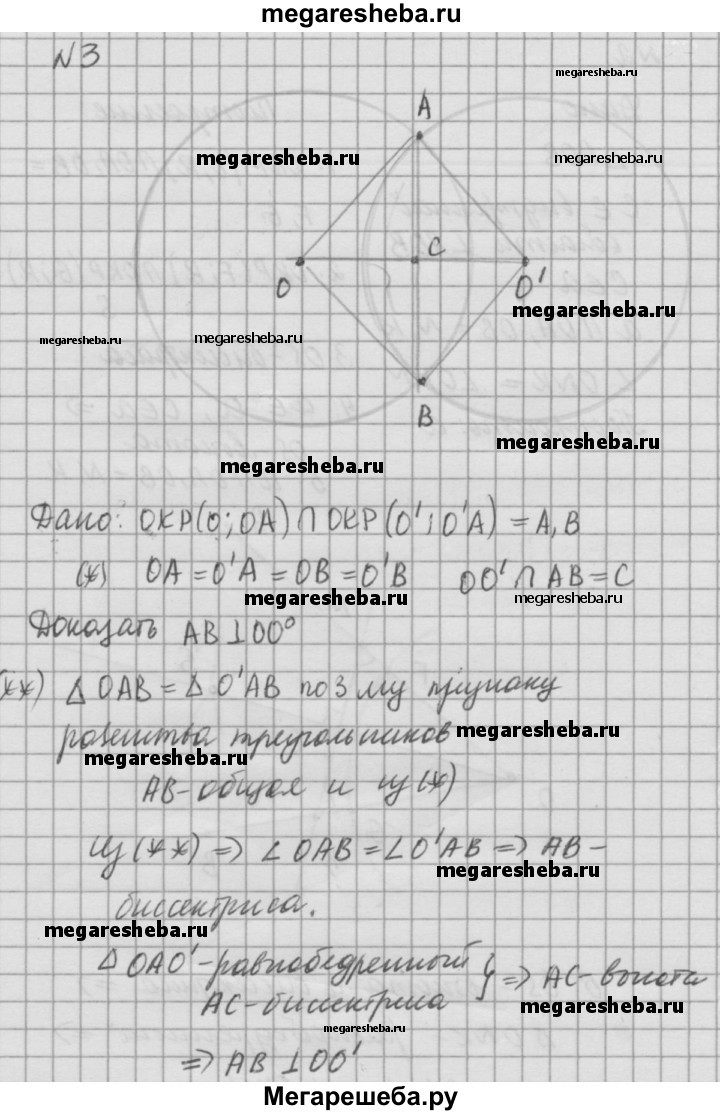 megaresheba.ru
N3
megaresheba.ru
A
megaresheba.ru
megaresheba.ru
C
O
O'
megaresheba.ru
megaresheba.ru
megaresheba.ru
B
megaresheba.ru
megaresheba.ru
Дано: ОКР(О; ОА) ∩ ОКР(О'; О'А) = А, В
(*) ОА = О'А = ОВ = О'В ОО' ∩ АВ = С
megaresheba.ru
megaresheba.ru
Доказать АВ ⊥ ОО°
(**) Δ ОАВ = Δ О'АВ по 3 му признаку
равенства треугольников
megaresheba.ru
megaresheba.ru
АВ - общая и из (*)
Из (**) => ∠ ОАВ = ∠ О'АВ => АВ -
megaresheba.ru
биссектриса.
megaresheba.ru
Δ ОАО' - равнобедренный
АС - биссектриса } => АС - высота
megaresheba.ru
megaresheba.ru
=> АВ ⊥ ОО'
Мегарешеба.ру